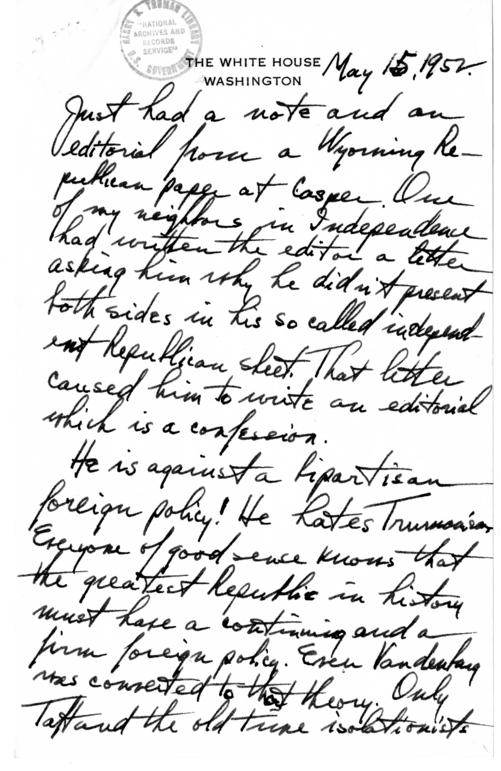 HARRY S. TRUMAN LIBRARY
"NATIONAL
ARCHIVES AND
RECORDS
SERVICE"
U.S. GOVERNMENT
THE WHITE HOUSE
WASHINGTON
May 15, 1952.
Just had a note and an
editorial from a Wyoming Re-
publican paper at Casper. One
of my neighbors in Independence
had written the editor a letter
asking him why he didn't present
both sides in his so called independ-
ent Republican sheet. That letter
caused him to write an editorial
which is a confession.
He is against a bipartisan
foreign policy! He hates Trumanism
Everyone of good sense knows that
the greatest Republic in history
must have a continuing and a
firm foreign policy. Even Vandenberg
was converted to that theory. Only
Taft and the old time isolationists